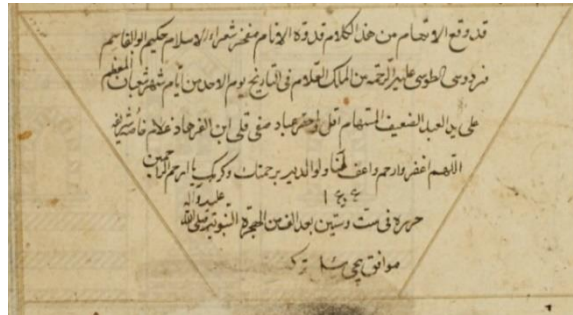 قد وقع الاتمام من هذ الکلام قدوة الانام مفخر شعراء الاسلام حکیم ابوالقاسم
فردوسی الطوسی علیه الرحمة من الملک العلام فی التاریخ یوم الاحد من ایام شهر شعبان المعظم
علی ید العبد الضعیف المستهام اقل واحقر عباد صفی قلی ابن الفرهاد غلام خاصه شریفه
اللهم اغفر وارحم واعف لهما ولوالدیه برحمتک وکرمک یا ارحم الراحمین
حرره فی ست وستین بعد الف من الهجرة النبویة صلی الله علیه واله
موافق